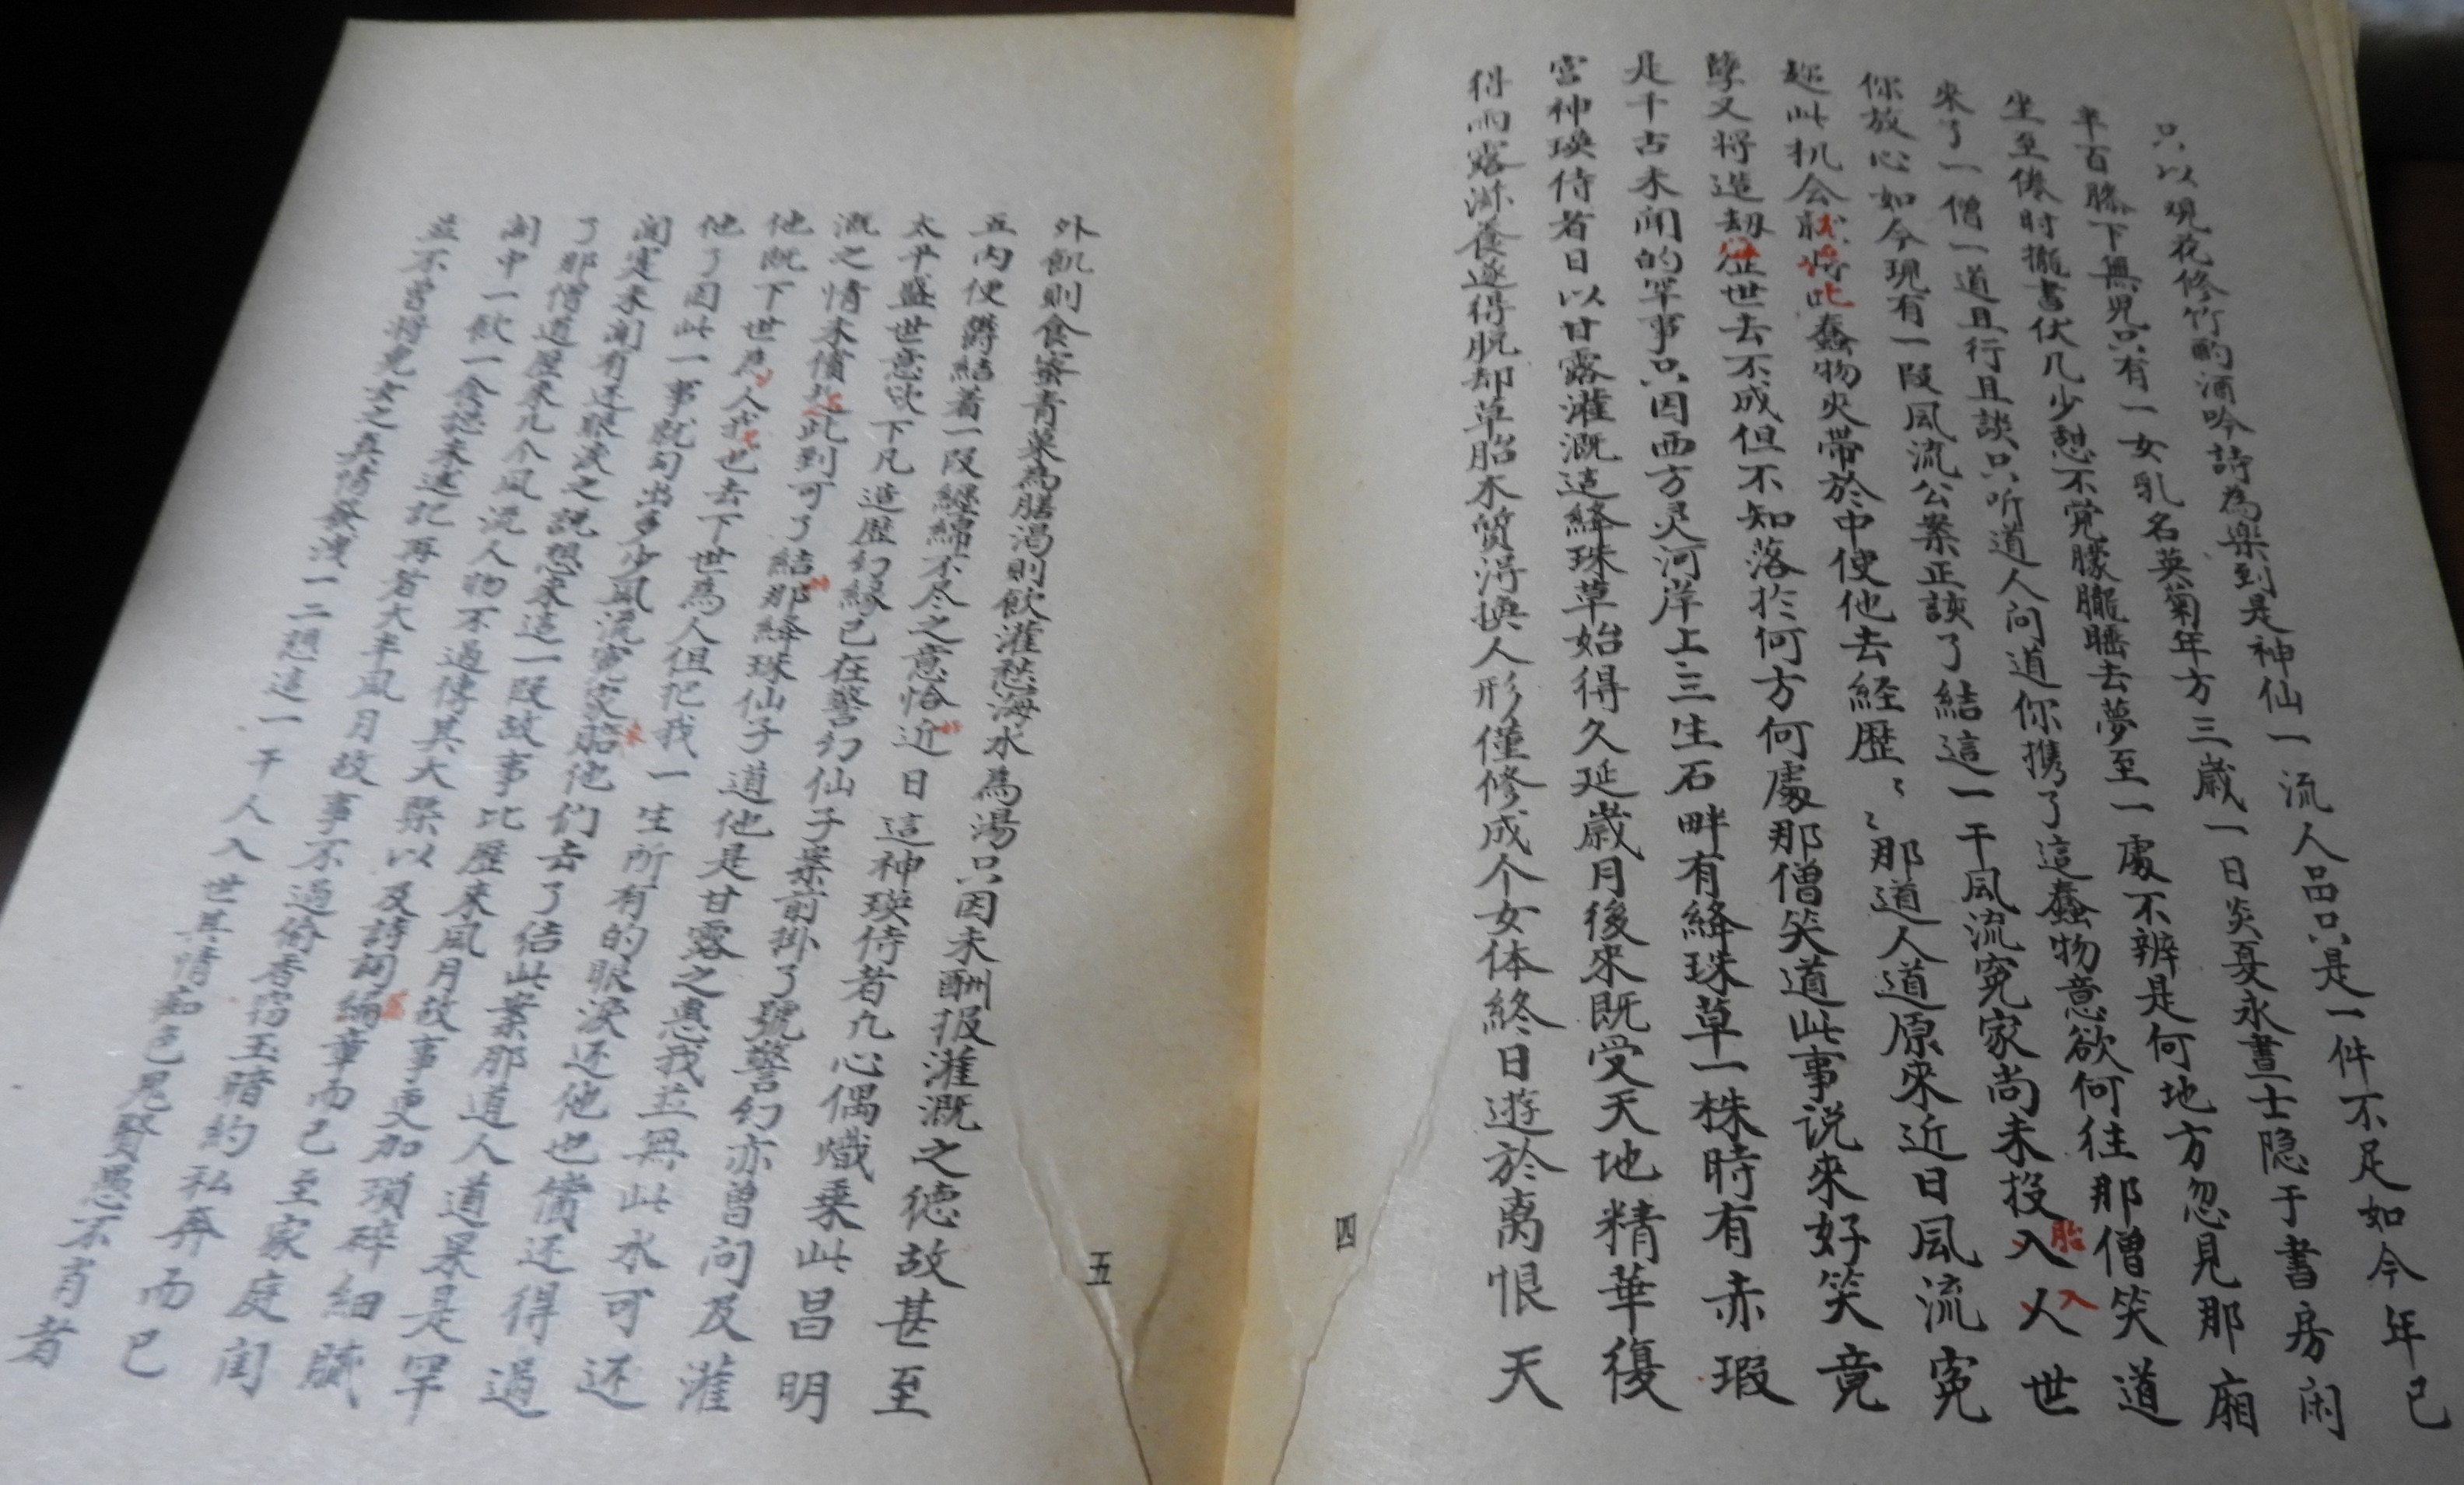 只以观花修竹酌酒吟詩為樂到是神仙一流人品只是一件不足如今年已
半百膝下無児只有一女乳名英菊年方三歳一日炎夏永晝士隐于書房闲
坐至倦时抛書伏几少憇不觉朦朧睡去夢至一處不辨是何地方忽見那廂
來了一僧一道且行且談只听道人问道你携了這蠢物意欲何往那僧笑道
你放心如今現有一叚風流公案正該了結這一干風流寃家尚未投入人世
胎入
趂此机会就将此蠢物夾帶於中使他去経歷〻〻那道人道原來近日風流寃
孽又将造劫歴世去不成但不知落於何方何處那僧笑道此事说来好笑竟
是千古未聞的罕事只因西方灵河岸上三生石畔有絳珠草一株時有赤瑕
宫神瑛侍者日以甘露灌溉這絳珠草始得久延歲月後來既受天地精華復
得雨露滋養遂得脱却草胎木質得换人形僅修成个女体終日遊於离恨天
四
外飢則食蜜青菓為膳渴則飲灌愁海水為湯只因未酬报灌溉之徳故甚至
五内便欝結着一叚纏綿不尽之意恰近日這神瑛侍者凢心偶熾乗此昌明
太平盛世意欲下凡造歷幻緣已在警幻仙子案前掛了號警幻亦曽问及灌
溉之情未償趂此到可了結那絳珠仙子道他是甘露之惠我並無此水可还
他既下世為人我也去下世為人但把我一生所有的眼淚还他也償还得過
他了因此一事就勾出多少風流寃家陪他们去了结此案那道人道果是罕
闻寔未闻有还眼淚之説想來這一叚故事比歷来風月故事更加瑣碎細膩
了那僧道歷来几个風流人物不過傳其大槩以及詩詞編章而已至家庭閨
阁中一飲一食総未述記再者大半風月故事不過偷香窃玉暗約私奔而已
並不曽将児女之真情發洩一二想這一干人入世其情痴色鬼賢愚不肖者
五